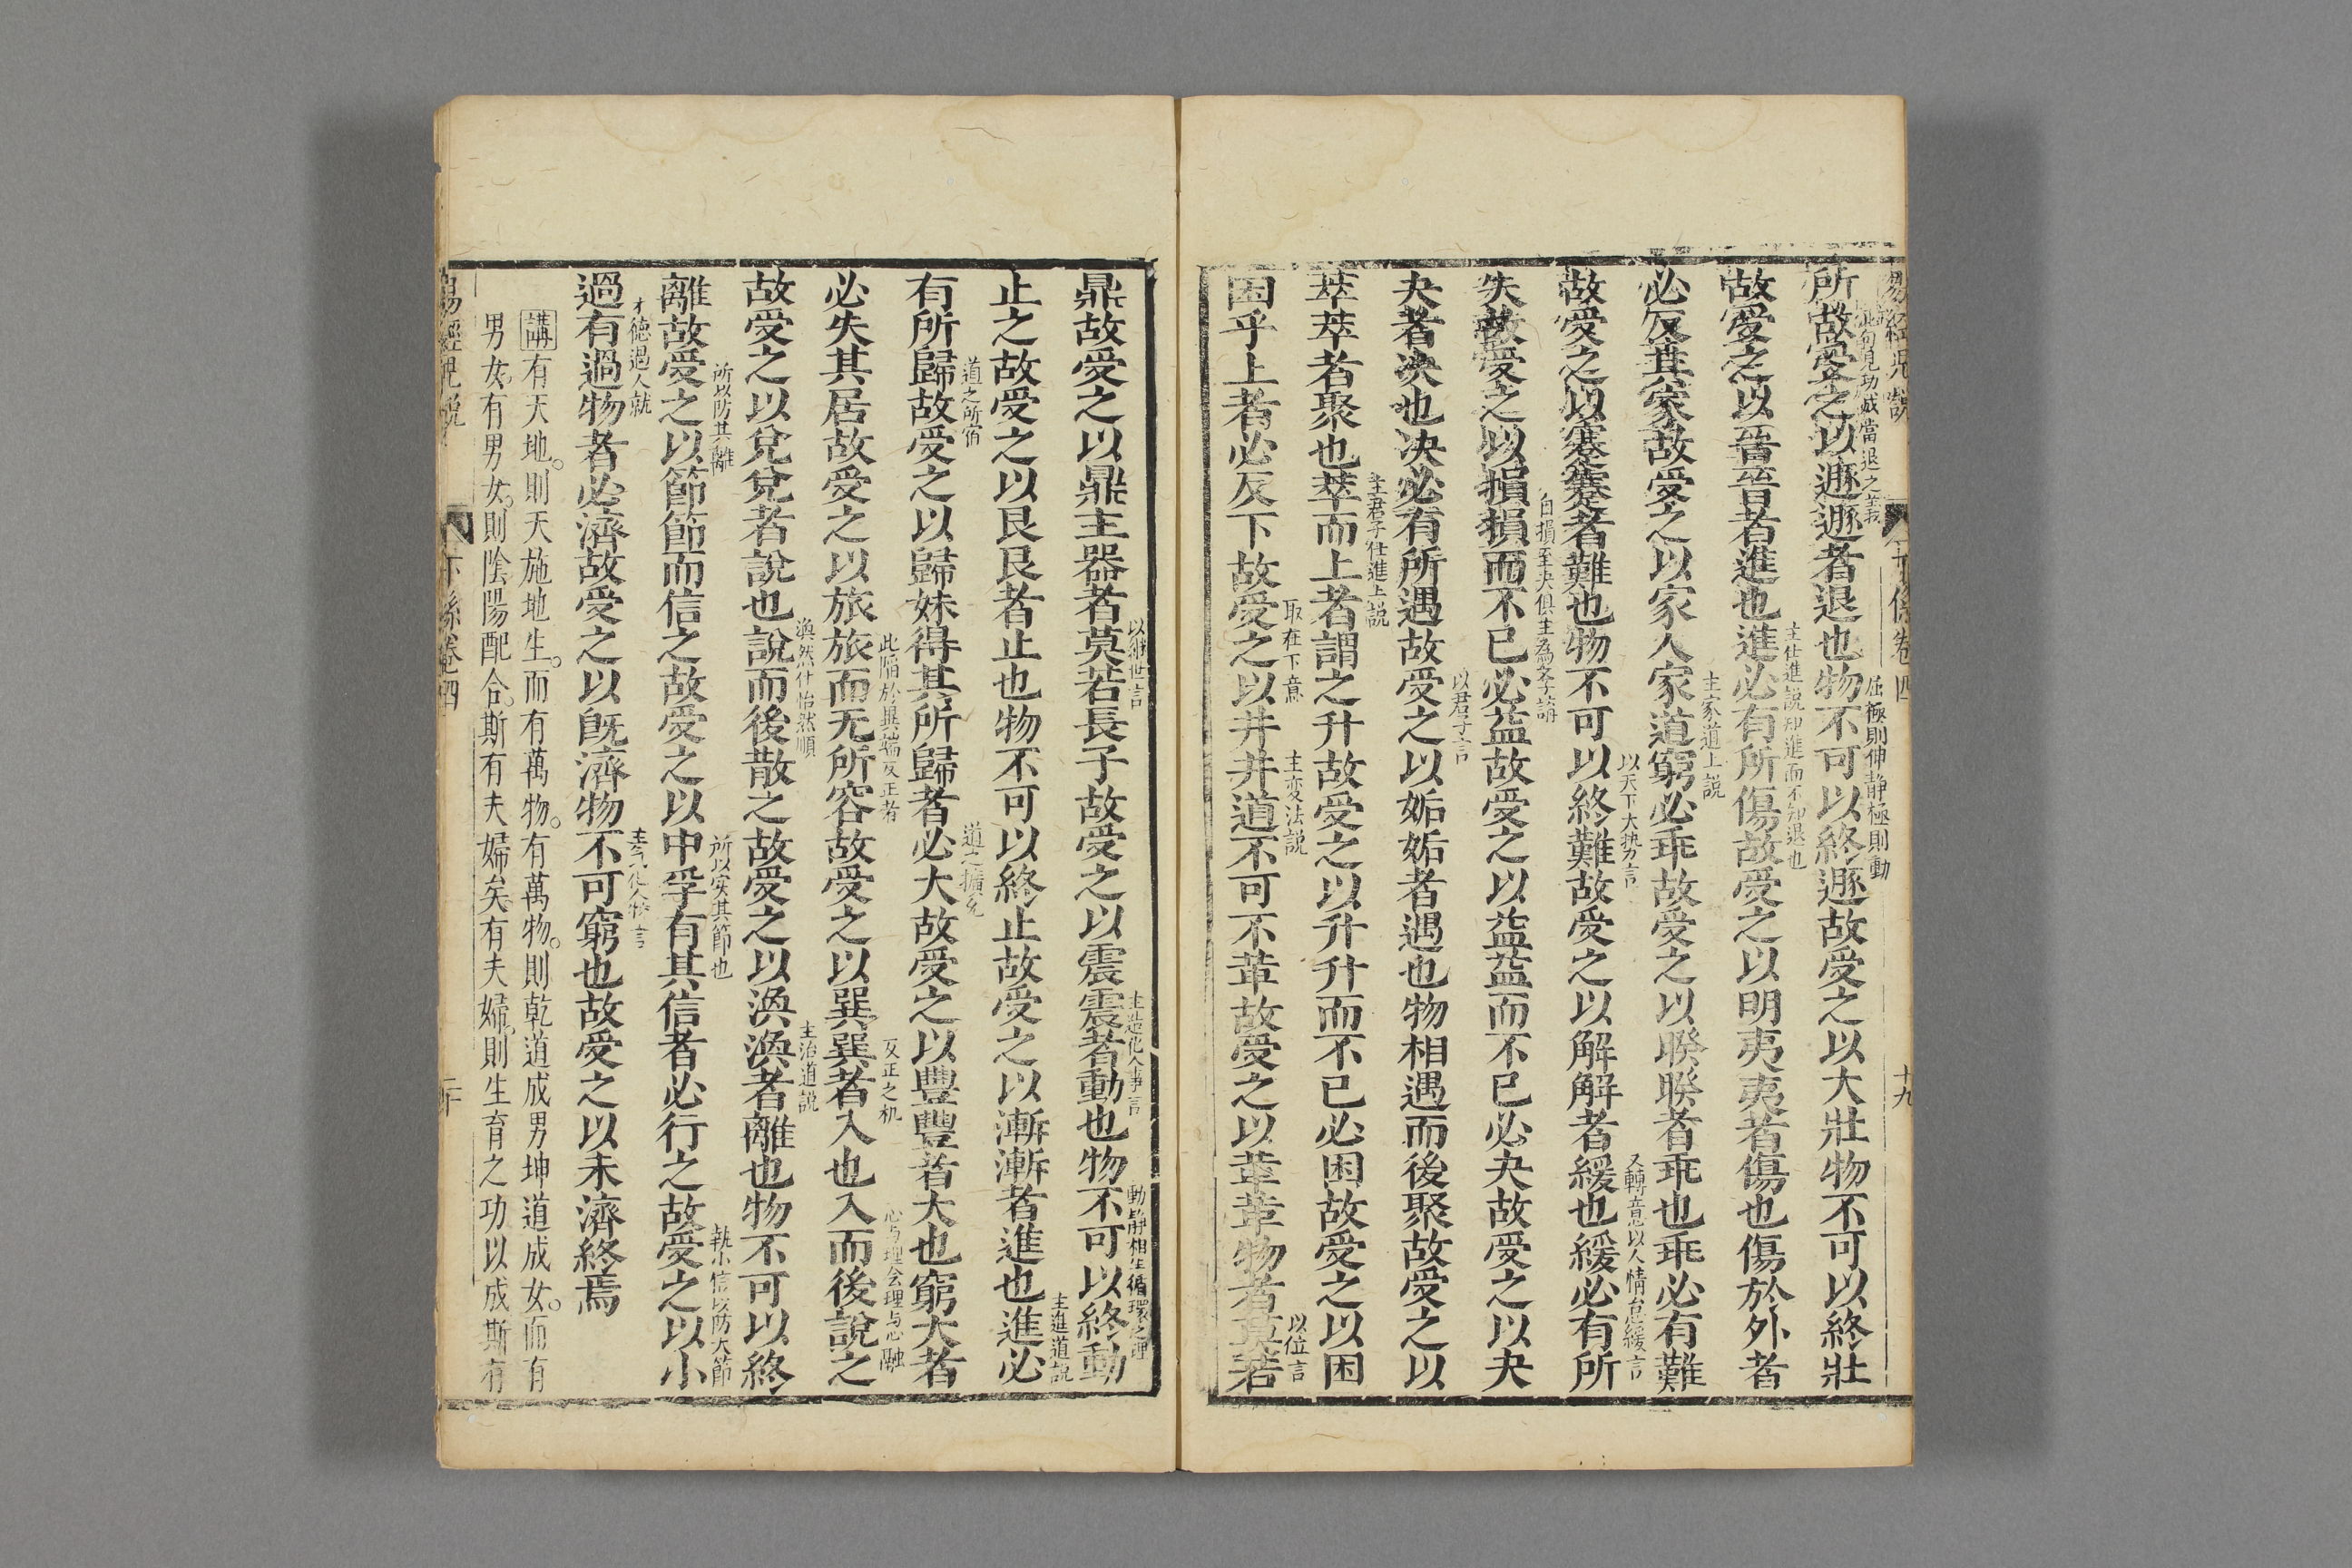 此句見功成當退之義
屈極則伸靜極則動
所故受之以遯遯者退也物不可以終遯故受之以大壯物不可以終壯
主仕進說知進而不知退也
故受之以晉晉者進也進必有所傷故受之以明夷夷者傷也傷於外者
主家道上說
必反其家故受之以家人家道窮必乖故受之以睽睽者乖也乖必有難
以天下大势言
又轉意以人情怠緩言
故受之以蹇蹇者難也物不可以終難故受之以解解者緩也緩必有所
自損至夬俱主為君子謀
失故受之以損損而不已必益故受之以益益而不已必夬故受之以夬
以君子言
夬者决也决必有所遇故受之以姤姤者遇也物相遇而後聚故受之以
主君子仕進上説
萃萃者聚也萃而上者謂之升故受之以升升而不已必困故受之以困
取在下意
主変法説
以位言
困乎上者必反下故受之以井井道不可不革故受之以革革物者莫若
以継世言
主造化人事言
動靜相生循環之理
鼎故受之以鼎主器者莫若長子故受之以震震者動也物不可以終動
主進道説
止之故受之以艮艮者止也物不可以終止故受之以漸漸者進也進必
道之所宿
道之擴充
有所歸故受之以歸妹得其所歸者必大故受之以豐豐者大也窮大者
此陷於異端反正者
反正之机
心与理会理与心融
必失其居故受之以旅旅而无所容故受之以巽巽者入也入而後說之
渙然什怡然順
主治道説
故受之以兌兌者說也說而後散之故受之以渙渙者離也物不可以終
所以防其離
所以实其節也
執小信以防大節
離故受之以節節而信之故受之以中孚有其信者必行之故受之以小
才徳過人就
過有過物者必濟故受之以旣濟物不可窮也故受之以未濟終焉
講有天地。則天施地生。而有萬物。有萬物。則乾道成男坤道成女。而有
男女。有男女。則陰陽配合。斯有夫婦矣。有夫婦。則生育之功以成斯有
易經説 下係卷四 十九